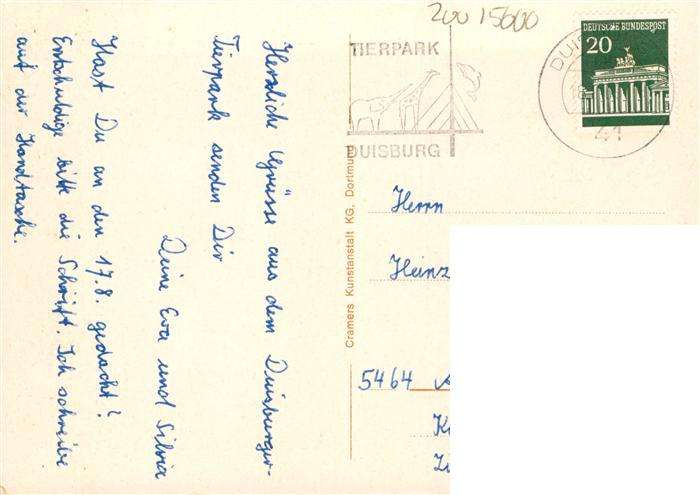 200 15600
TIERPARK
DUISBURG
DEUTSCHE BUNDESPOST
20
DUIS
41
Herzliche Grüsse aus dem Duisburger-
Tierpark senden Dir
Deine Eva und Silvia
Hast Du an den 17.8. gedacht?
Entschuldige bitte die Schrift. Ich schreibe
auf der Handtasche.
Cramers Kunstanstalt KG, Dortmund
Herrn
Heinz
5464